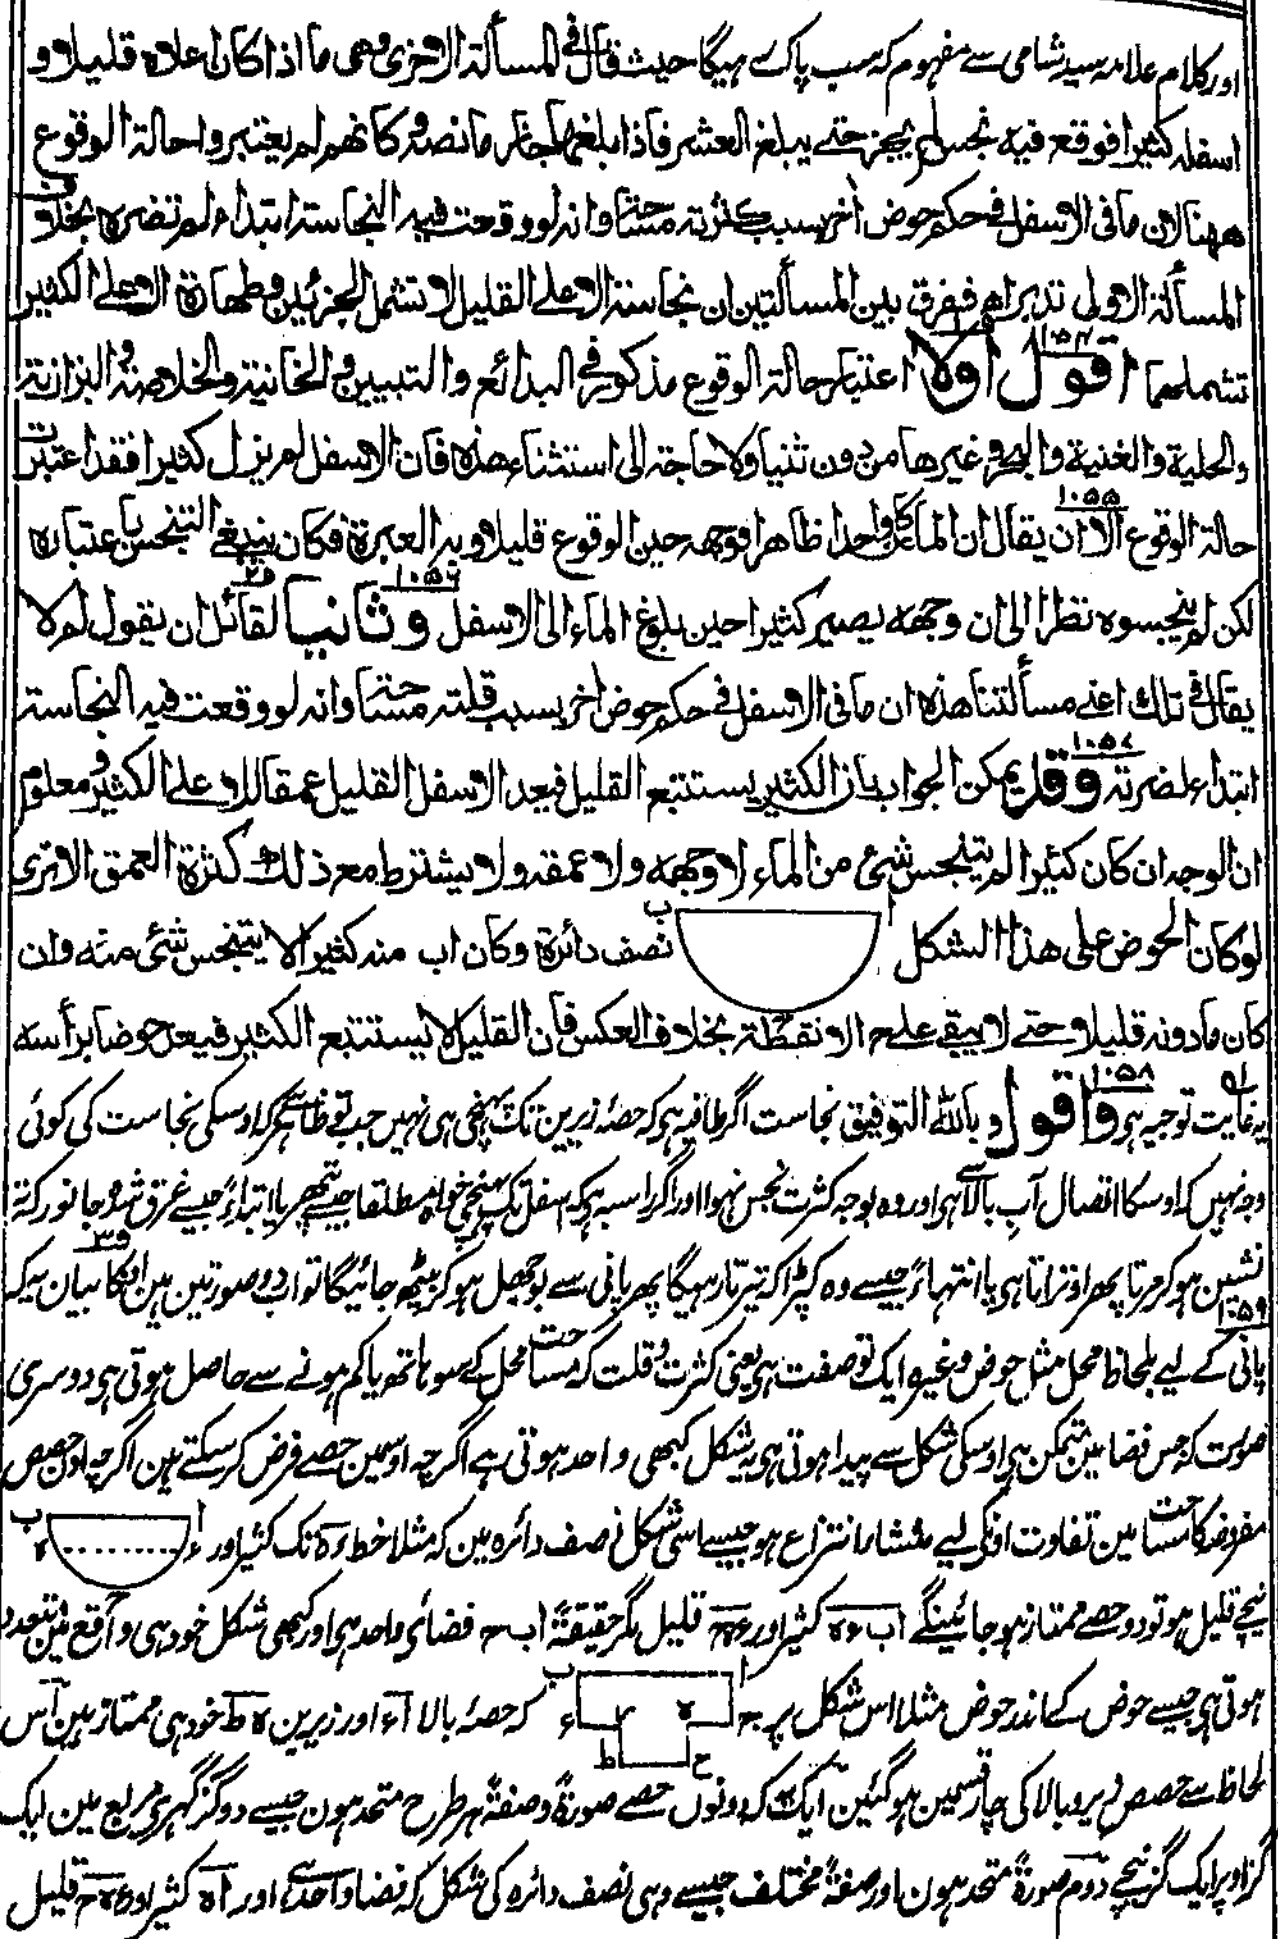 اور کلام علامہ سید شامی سے مفہوم کہ سب پاک رہیگا حیث قال فی المسألۃ الاخری وھی ما اذا کان اعلاہ قلیلا و
اسفلہ کثیرا فوقع فیہ نجس لم یجز حتے یبلغ العشر فاذا بلغھا جاز ما نصہ وکانھم لم یعتبروا حالۃ الوقوع
ھھنا لان ما فی الاسفل فی حکم حوض اٰخر بسبب کثرتہ مساحۃ وانہ لو وقعت فیہ النجاسۃ ابتداء لم تضرہ بخلاف
المسألۃ الاولی تدبر اھ ففرق بین المسألتین ان نجاسۃ الاعلے القلیل لا تشمل الجزئین وطھارۃ الاعلے الکثیر
تشملھما اقول اولا اعتبار حالۃ الوقوع مذکور فی البدائع والتبیین والخانیۃ والخلاصۃ والبزازیۃ ۱۰۵۴
والحلیۃ والغنیۃ والبحر وغیرھا من دون ثنیا ولا حاجۃ الی استثناء ھذہ فان الاسفل لم یزل کثیرا فقد اعتبرت
حالۃ الوقوع الا ان یقال ان الماء کان واحدا ظاھرا فوجھہ حین الوقوع قلیل وبہ العبرۃ فکان ینبغے التنجس باعتبارہ ۱۰۵۵
لکن لم ینجسوہ نظرا الی ان وجھہ یصیر کثیرا حین بلوغ الماء الی الاسفل وثانیا لقائل ان یقول لم لا ۱۰۵۶
یقال فی تلک اعنے مسألتنا ھذہ ان ما فی الاسفل فی حکم حوض اٰخر بسبب قلتہ مساحۃ وانہ لو وقعت فیہ النجاسۃ
ابتداء لضرتہ وقد یمکن الجواب بان الکثیر یستتبع القلیل فیعد الاسفل القلیل عمقا للاعلے الکثیر ومعلوم ۱۰۵۷
ان الوجہ ان کان کثیرا لم یتنجس شئ من الماء لا وجھہ ولا عمقہ ولا یشترط مع ذلک کثرۃ العمق الا تری
لو کان الحوض علی ھذا الشکل ا ب نصف دائرۃ وکان اب منہ کثیرا لا یتنجس شئ منہ وان
کان ما دونہ قلیلا حتے لا یبقے علے ح الا نقطۃ بخلاف العکس فان القلیل لا یستتبع الکثیر فیعد حوضا برأسہ
یہ غایت توجیہ ہی واقول وباللّٰہ التوفیق نجاست اگر طافیہ ہی کہ حصۂ زیرین تک پہنچی ہی نہیں جب تو ظاہر کہ اوسکی نجاست کی کوئی ۱۰۵۸
وجہ نہیں کہ اوسکا اتصال آبِ بالا سے ہی اور وہ بوجہ کثرت نجس نہوا اور اگر راسبہ ہی کہ اسفل تک پہنچی خواہ مطلقا جیسے پتھر یا ابتداءً جیسے غرق شدہ جانور کہ تہ
نشین ہو کر مرتا پھر اوتراتا ہی یا انتہاءً جیسے وہ کپڑا کہ تیرتا رہیگا پھر پانی سے بوجھل ہو کر بیٹھ جائیگا تو اب دو صورتین ہین انکا بیان یہ کہ
پانی کے لیے بلحاظ محل مثل حوض وغیرہ ایک تو صفت ہی یعنی کثرت وقلت کہ مساحت محل کے سو ہاتھ یا کم ہونے سے حاصل ہوتی ہی دوسری ۱۰۵۹
صورت کہ جس فضا مین متمکن ہی اوسکی شکل سے پیدا ہوتی ہی یہ شکل کبھی واحد ہوتی ہے اگرچہ اوسمین حصے فرض کرسکتے ہین اگرچہ اون حصص
مفروضہ کا مساحت مین تفاوت اونکے لیے منشاء انتزاع ہو جیسے اسی شکل نصف دائرہ مین کہ مثلا خط ءہ تک کثیر اور ا ء ب ہ
نیچے قلیل ہو تو دو حصے ممتاز ہوجائینگے اب ءہ کثیر اور ءہ ح قلیل مگر حقیقۃً اب ح فضائے واحد ہی اور کبھی شکل خود ہی واقع مین متعدد
ہوتی ہی جیسے حوض کے اندر حوض مثلا اس شکل پر ا ب ج ہ ر ء ح ط کہ حصۂ بالا اء اور زیرین ہ ط خود ہی ممتاز ہین اس
لحاظ سے حصص زیر وبالا کی چار قسمین ہوگئین ایک یہ کہ دونوں حصے صورۃً وصفۃً ہر طرح متحد ہون جیسے دو گز گہری مربع مین ایک
گز اوپر ایک گز نیچے دوم صورۃً متحد ہون اور صفۃً مختلف جیسے وہی نصف دائرہ کی شکل کہ فضا واحد ہے اور اہ کثیر اور ءہ ح قلیل